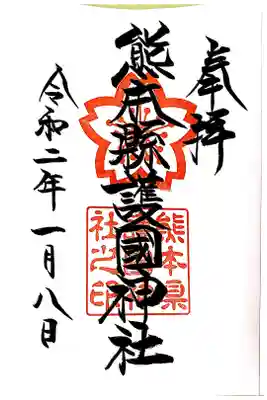 奉拝
熊本縣護國神社
令和二年一月八日
熊本県
社之印